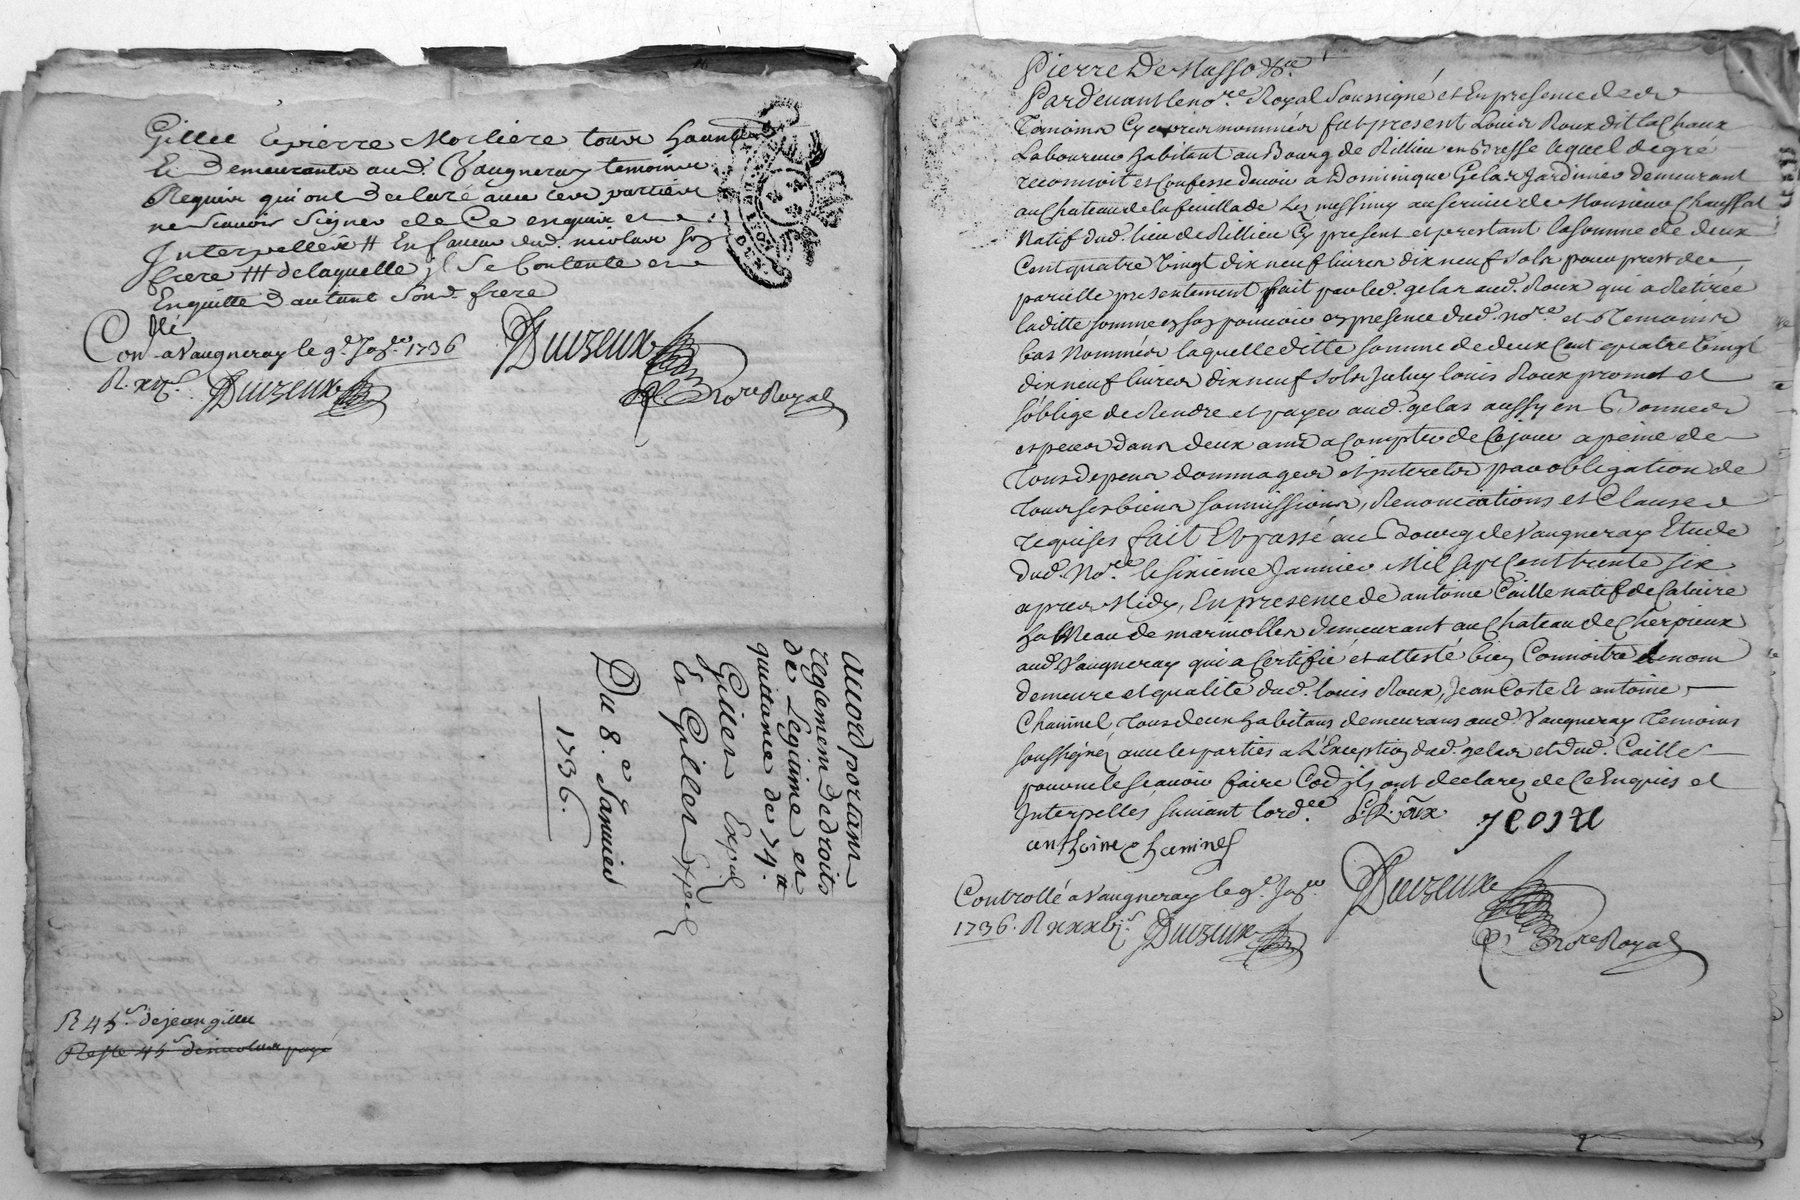 Gillee Epierre Morliere tous haunt
Et Demeurants aud. Vaugneray temoins
Requis qui ont Declaré avec les parties
ne scavoir signer de Ce enquis et
Interpellés # En faveur dud. nicolas son
frere ### de laquelle jl Se Contente et
En quitte D'autant Sond. frere
Conllé a Vaugneray le 9e Janer 1736
R. xijs. Duizeux
Duizeux
Nore Royal
accord portant
reglement de droits
de Legitime et
quittance de 74 tt
Giller Exped
la Giller Exped
Du 8e Janvier
1736.
R 45s. de jean giller
Reste 45s de nicolas payé
Pierre De Masso &c.
Pardevant le nore Royal Soussigné et En presence de
Temoins Cy apres nommés fut present Louis Roux dit la Chaux
Laboureur habitant au Bourg de Rillieu en Bresse lequel de gre
reconnoit et Confesse devoir a Dominique Gelas Jardinier demeurant
au Chateau de la feuillade Les messimy au service de Monsieur Chauffat
Natif dud. lieu de Rillieu Cy present et prestant la somme de deux
Cent quatre Vingt dix neuf livres dix neuf sols pour prest de
parielle presentement fait par led. gelas aud. Roux qui a Retirée
laditte somme en son pouvoir en presence dud. nore et Temoins
bas Nommés laquelle ditte somme de deux Cent quatre Vingt
dix neuf livres dix neuf sols Jceluy louis Roux promet et
s'oblige de Rendre et payer aud. gelas aussy en Bonnes
especes dans deux ans a Compter de Ce jour a peine de
Tous depens dommages et interets par obligation de
Tous ses biens soumissions, Renonciations et Clauses
requises fait Et passé au Bourg de Vaugneray Etude
dud. Nore le sixieme Janvier Mil sept Cent trente six
apres Midy, En presence de antoine Caille natif de Caluire
hameau de marmolles demeurant au Chateau de Cherpieux
aud. Vaugneray qui a Certifié et attesté bien Connoitre le nom
demeure et qualité dud. louis Roux, Jean Coste Et antoine
Chaninel Tous deux habitans demeurans aud. Vaugneray Temoins
soussignez avec les parties a L'Exception dud. gelas et dud. Caille
pour ne le scavoir faire Co[m]e jls ont declarez de Ce Enquis et
Interpellés suivant lordce L. Roux J COSTE
anthoine chaninel
Controllé a Vaugneray le 9e Janer
1736. R xxxvjs. Duizeux
Duizeux
Nore Royal